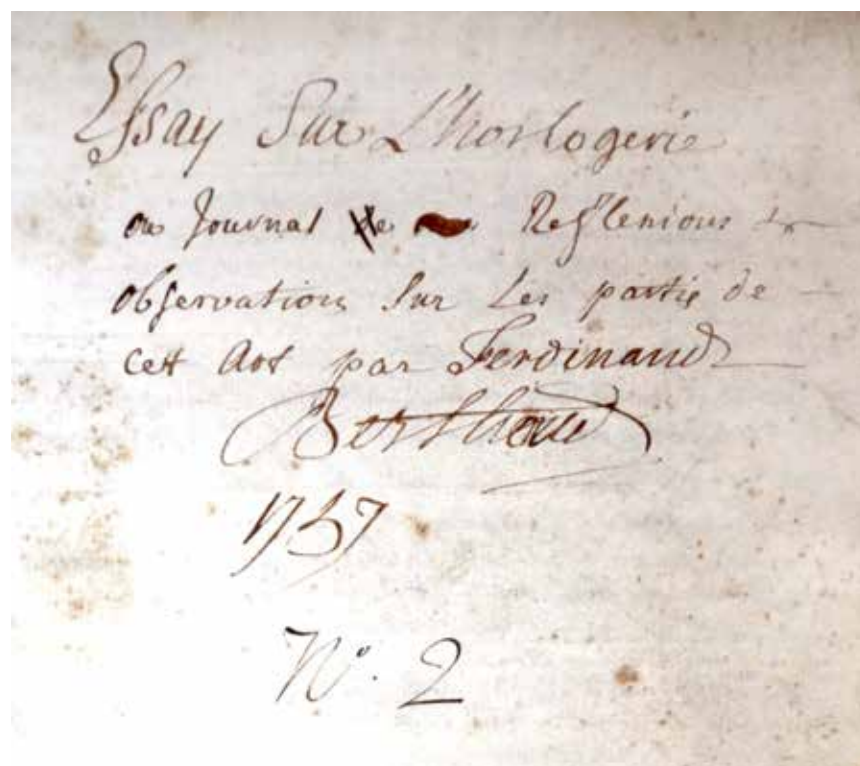 Essay Sur L'horlogerie
ou Journal de Reflexions &
observations Sur Les partie de
cet Art par Ferdinand
Berthoud
1757
N°. 2